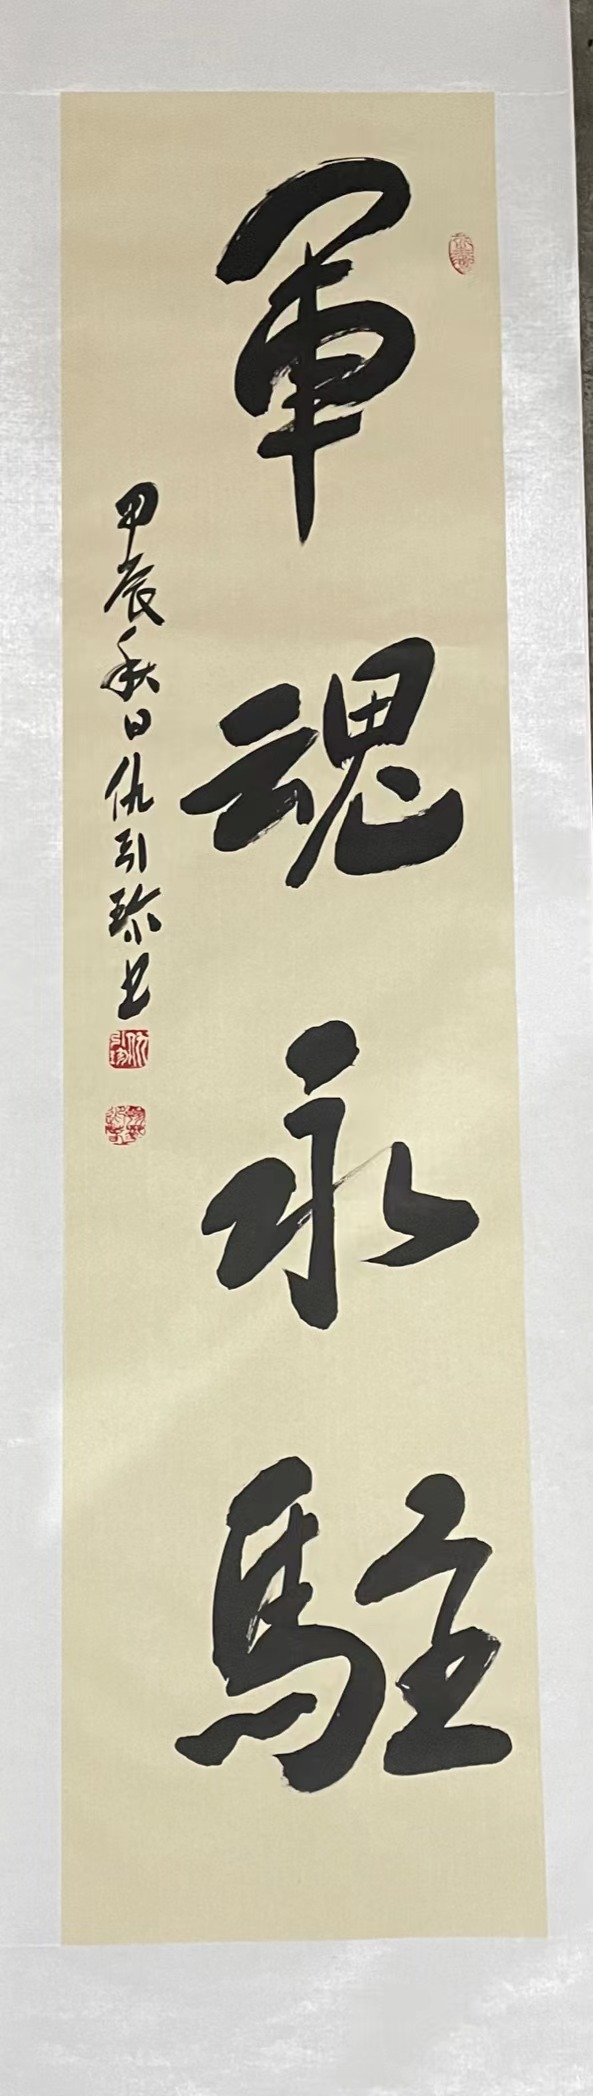 軍魂永駐
甲辰秋日仇引珍书